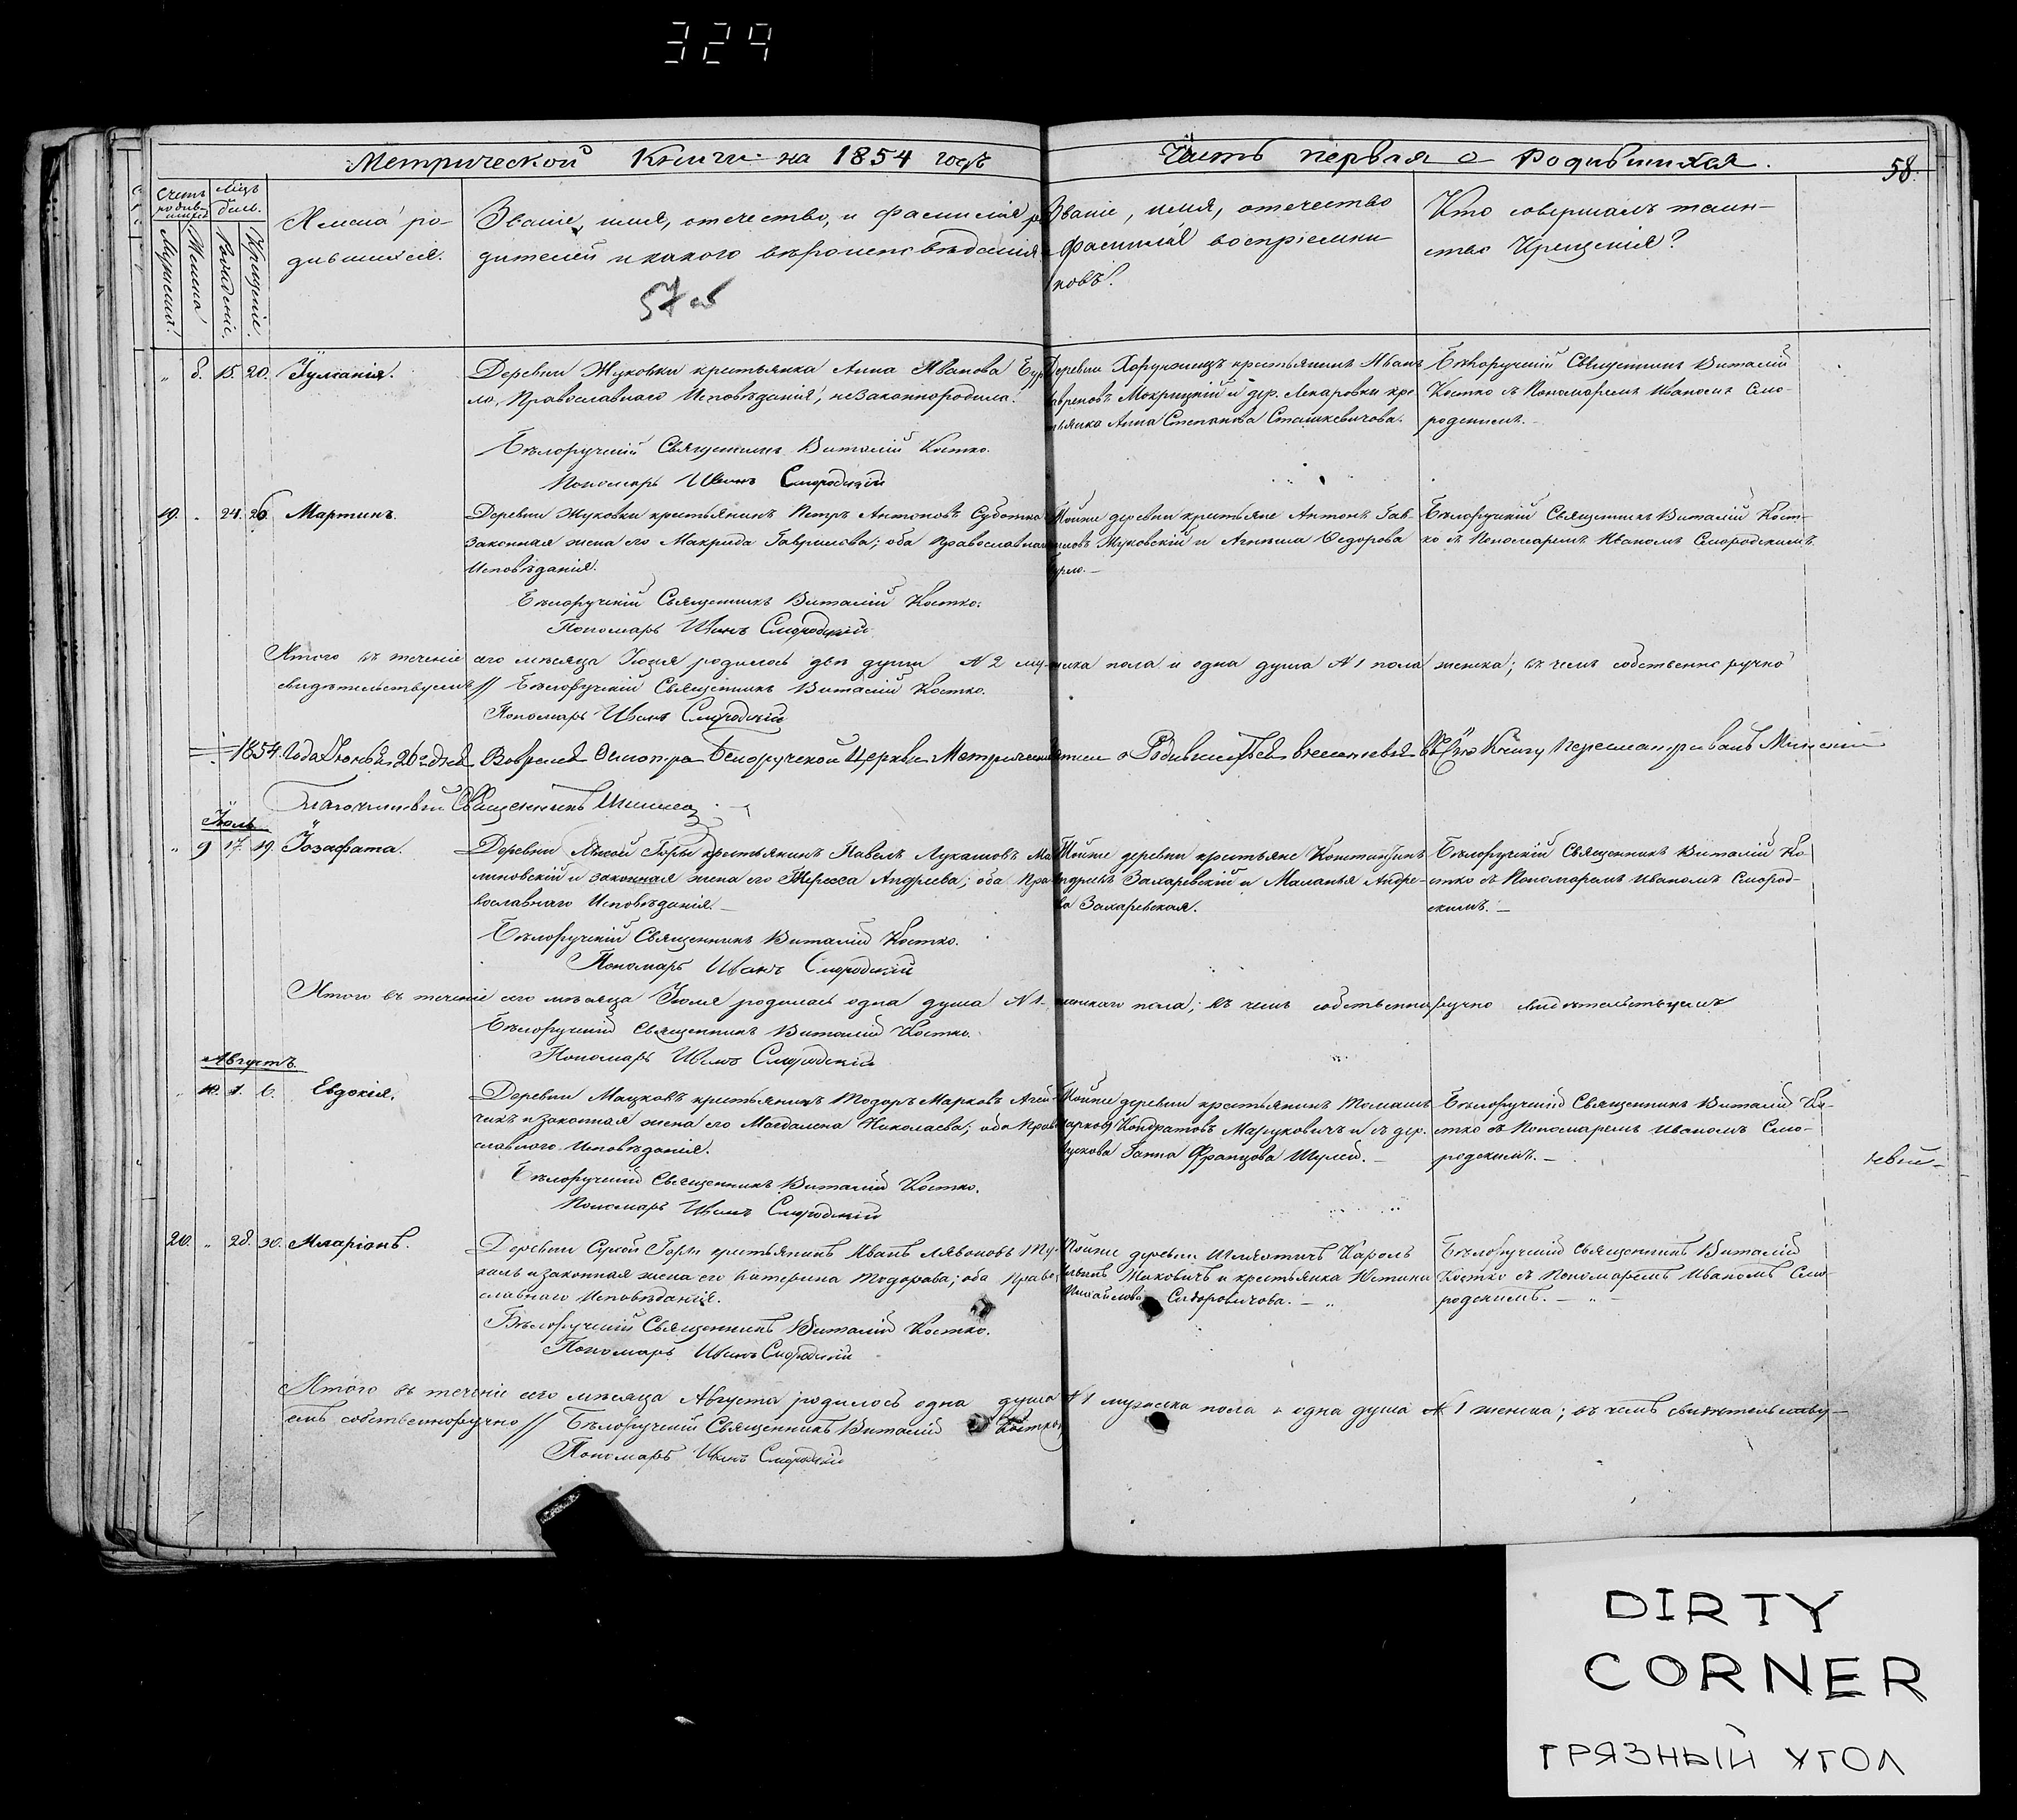 329
Метрической Книги на 1854 годъ
Часть первая о Родившихся.
58.
Счетъ родив-шихся
Мѣц. день.
Мужеска!
Женска!
Рожденіе.
Крещеніе.
Имена ро-
дившихся.
Званіе, имя, отечество, и фамилія ро
дителей и какого вѣроисповѣданія
57 об
Званіе, имя, отечество
фамилія воспріемни
ковъ?
Кто совершалъ таин-
ство Крещенія?
" 8. 15. 20. Іуліанія.
Деревни Жуковки крестьянка Анна Иванова
ло, Православнаго Исповѣданія, незаконнородила.
Бѣлоручскій Священникъ Виталій Костко.
Пономарь Иванъ Смородскій
Деревни Хорунжицъ крестьянинъ Иванъ
Мокрицкій и дер. Лекаровки кре
Анна Степанова Сташкевичова.
Бѣлоручскій Священникъ Виталій
Костко съ Пономаремъ Иваномъ Смо-
родскимъ.
19. " 24. 26. Мартинъ.
Деревни Жуковки крестьянинъ Петръ Антоновъ Суботка
законная жена его Макрида Гаврилова; оба Православна
Исповѣданія.
Бѣлоручскій Священникъ Виталій Костко.
Пономарь Иванъ Смородскій
Тойже деревни крестьяне Антонъ Гав-
риловъ Жуковскій и Агньша Ѳедорова
Бѣлоручскій Священникъ Виталій Кост-
ко съ Пономаремъ Иваномъ Смородскимъ.
Итого въ теченіе сего мѣсяца Іюня родилось двѣ души N 2 му-жска пола и одна душа N 1 пола женска; въ чемъ собственноручно
свидѣтельствуемъ // Бѣлоручскій Священникъ Виталій Костко.
Пономарь Иванъ Смородскій
1854 Года 26 дня Вовремя Осмотра Белоручской Церкви о Родившихся Книгу Пересматривалъ Минскій
Благочинный Священникъ
Іюль
" 9 17. 19. Іозафата.
Деревни Лысой Горы крестьянинъ Павелъ Лукашовъ Ма
линовскій и законная жена его Тереса Андреева; оба Пра
вославнаго Исповѣданія.
Бѣлоручскій Священникъ Виталій Костко.
Пономарь Иванъ Смородскій
Тойже деревни крестьяне Константинъ
Андреевъ Захаревскій и Маланья Андре-
ва Захаревская.
Бѣлоручскій Священникъ Виталій Ко
стко съ Пономаремъ Иваномъ Смород-
скимъ.
Итого въ теченіе сего мѣсяца Іюля родилась одна душа N 1. женскаго пола; въ чемъ собственноручно свидѣтельствуемъ
Бѣлоручскій Священникъ Виталій Костко.
Пономарь Иванъ Смородскій
Августъ.
" 10. 1. 6. Евдокія.
Деревни Мацковъ крестьянинъ Тодоръ Марковъ Агей-
чикъ и законная жена его Магдалена Николаева; оба Право
славнаго Исповѣданія.
Бѣлоручскій Священникъ Виталій Костко.
Пономарь Иванъ Смородскій
Тойже деревни крестьянинъ Томашъ
Кондратовъ Марцуковичъ и съ дер.
Ганна Францова Шулей.
Бѣлоручскій Священникъ Виталій Ко-
стко съ Пономаремъ Иваномъ Смо-
родскимъ.
20. " 28. 30. Иларіонъ.
Деревни Сухой Горы крестьянинъ Иванъ Лявоновъ
и законная жена его Катерина Тодорова; оба Право
славнаго Исповѣданія.
Бѣлоручскій Священникъ Виталій Костко.
Пономарь Иванъ Смородскій
Тойже деревни Шляхтичъ Кароль
Жаковичъ и крестьянка Юстина
Михайлова Сидоровичова.
Бѣлоручскій Священникъ Виталій
Костко съ Пономаремъ Иваномъ Смо-
родскимъ.
Итого въ теченіе сего мѣсяца Августа родилось одна душа N 1 мужеска пола и одна душа N 1 женска; въ чемъ свидѣтельству-
емъ собственноручно // Бѣлоручскій Священникъ Виталій Костко
Пономарь Иванъ Смородскій
DIRTY
CORNER
ГРЯЗНЫЙ УГОЛ